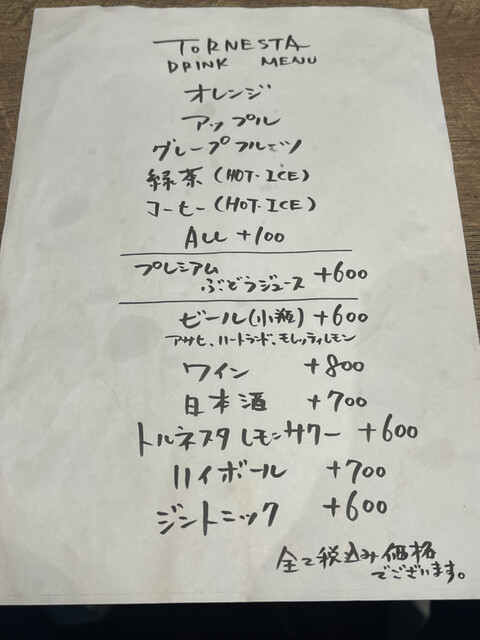 TORNESTA
DRINK MENU
オレンジ
アップル
グレープフルーツ
緑茶 (HOT・ICE)
コーヒー (HOT・ICE)
ALL +100
プレミアム
ぶどうジュース +600
ビール(小瓶) +600
アサヒ、ハートランド、モレッティレモン
ワイン +800
日本酒 +700
トルネスタレモンサワー +600
ハイボール +700
ジントニック +600
全て税込み価格
でございます。